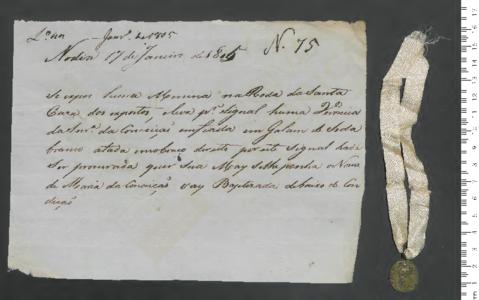 Janr.º de 1805
No dia 17 de Janeiro de 1805 N. 75
Se expos huma Menina na Roda da Santa
Caza dos expostos leva pr. Signal huma Veronica
da Snr.ª da Conceicaõ emfiada em Galam de Seda
branco atada no braco direito por este Signal hade
ser procurada quer Sua May se lhe ponha o Nome
de Maria da Conceição vay Baptizada debaixo de Con
dição